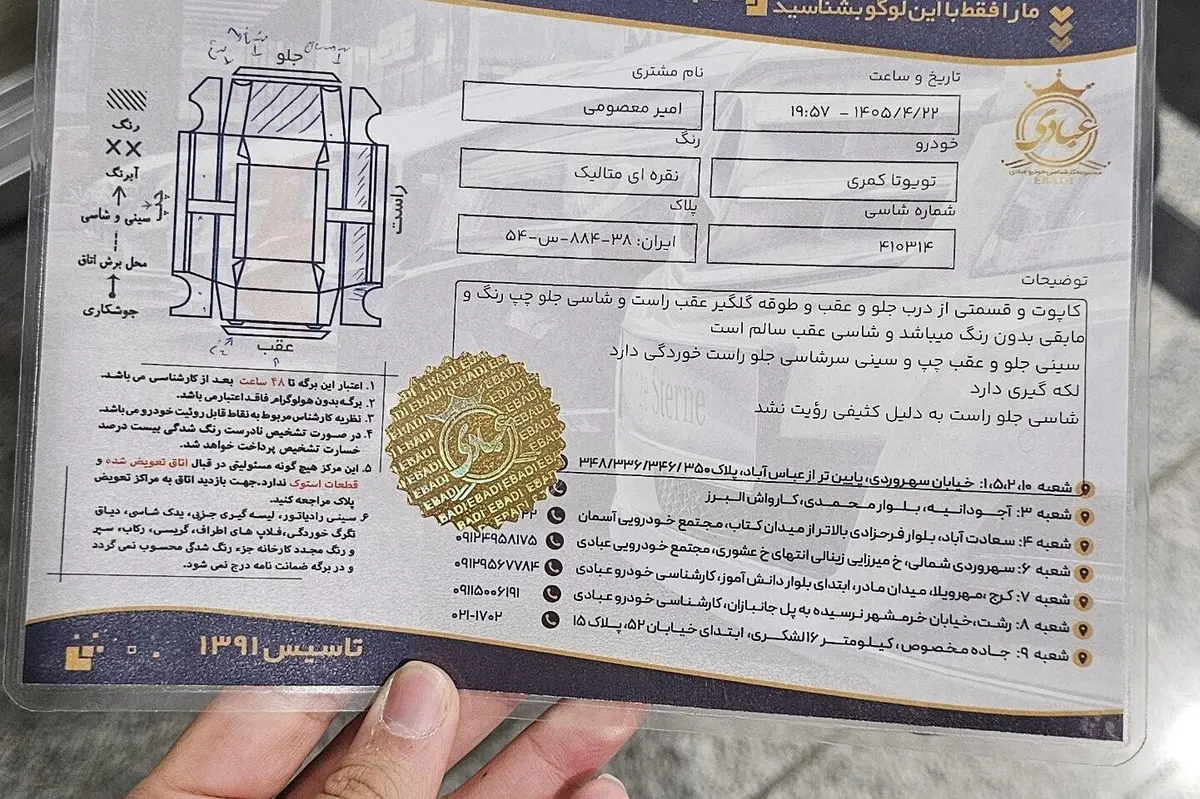 ما را فقط با این لوگو بشناسید
عبادی
مجموعه کارشناسی خودرو عبادی
EBADI
تاریخ و ساعت
۱۴۰۵/۴/۲۲ – ۱۹:۵۷
نام مشتری
امیر معصومی
خودرو
تویوتا کمری
رنگ
نقره ای متالیک
شماره شاسی
۴۱۰۳۱۴
پلاک
ایران: ۳۸-۸۸۴-س-۵۴
توضیحات
کاپوت و قسمتی از درب جلو و عقب و طوقه گلگیر عقب راست و شاسی جلو چپ رنگ و
مابقی بدون رنگ میباشد و شاسی عقب سالم است
سینی جلو و عقب چپ و سینی سرشاسی جلو راست خوردگی دارد
لکه گیری دارد
شاسی جلو راست به دلیل کثیفی رؤیت نشد
جلو
راست
چپ
عقب
رنگ
XX
آبرنگ
سینی و شاسی
محل برش اتاق
جوشکاری
۱. اعتبار این برگه تا ۴۸ ساعت بعد از کارشناسی می باشد.
۲. برگه بدون هولوگرام فاقد اعتبار می باشد.
۳. نظریه کارشناس مربوط به نقاط قابل روئیت خودرو می‌باشد.
۴. در صورت تشخیص نادرست رنگ شدگی بیست درصد
خسارت تشخیص پرداخت خواهد شد.
۵. این مرکز هیچ گونه مسئولیتی در قبال اتاق تعویض شده و
قطعات استوک ندارد.جهت بازدید اتاق به مراکز تعویض
پلاک مراجعه کنید.
۶. سینی رادیاتور، لیسه گیری جزئی، یدک شاسی، دیاق
تگرگ خوردگی، قلاب های اطراف، گریسی، رکاب، سپر
و رنگ مجدد کارخانه جزء رنگ شدگی محسوب نمی گردد
و در برگه ضمانت نامه درج نمی شود.
EBADI
Sterne
شعبه ۱،۵،۲،۱۰: خیابان سهروردی، پایین تر از عباس آباد، پلاک ۳۴۸/۳۳۶/۳۴۶/۳۵۰
شعبه ۳: آجودانیه، بلوار محمدی، کارواش البرز
شعبه ۴: سعادت آباد، بلوار فرحزادی بالاتر از میدان کتاب، مجتمع خودرویی آسمان
شعبه ۶: سهروردی شمالی، خ میرزایی زینالی انتهای خ عشوری، مجتمع خودرویی عبادی
شعبه ۷: کرج، مهرویلا، میدان مادر، ابتدای بلوار دانش آموز، کارشناسی خودرو عبادی
شعبه ۸: رشت، خیابان خرمشهر نرسیده به پل جانبازان، کارشناسی خودرو عبادی
شعبه ۹: جاده مخصوص، کیلومتر ۱۶ لشکری، ابتدای خیابان ۵۲، پلاک ۱۵
۲۲
۰۹۱۲۴۹۵۸۱۷۵
۰۹۱۲۹۵۶۷۷۸۴
۰۹۱۱۵۰۰۶۱۹۱
۰۲۱-۱۷۰۲
تاسیس ۱۳۹۱